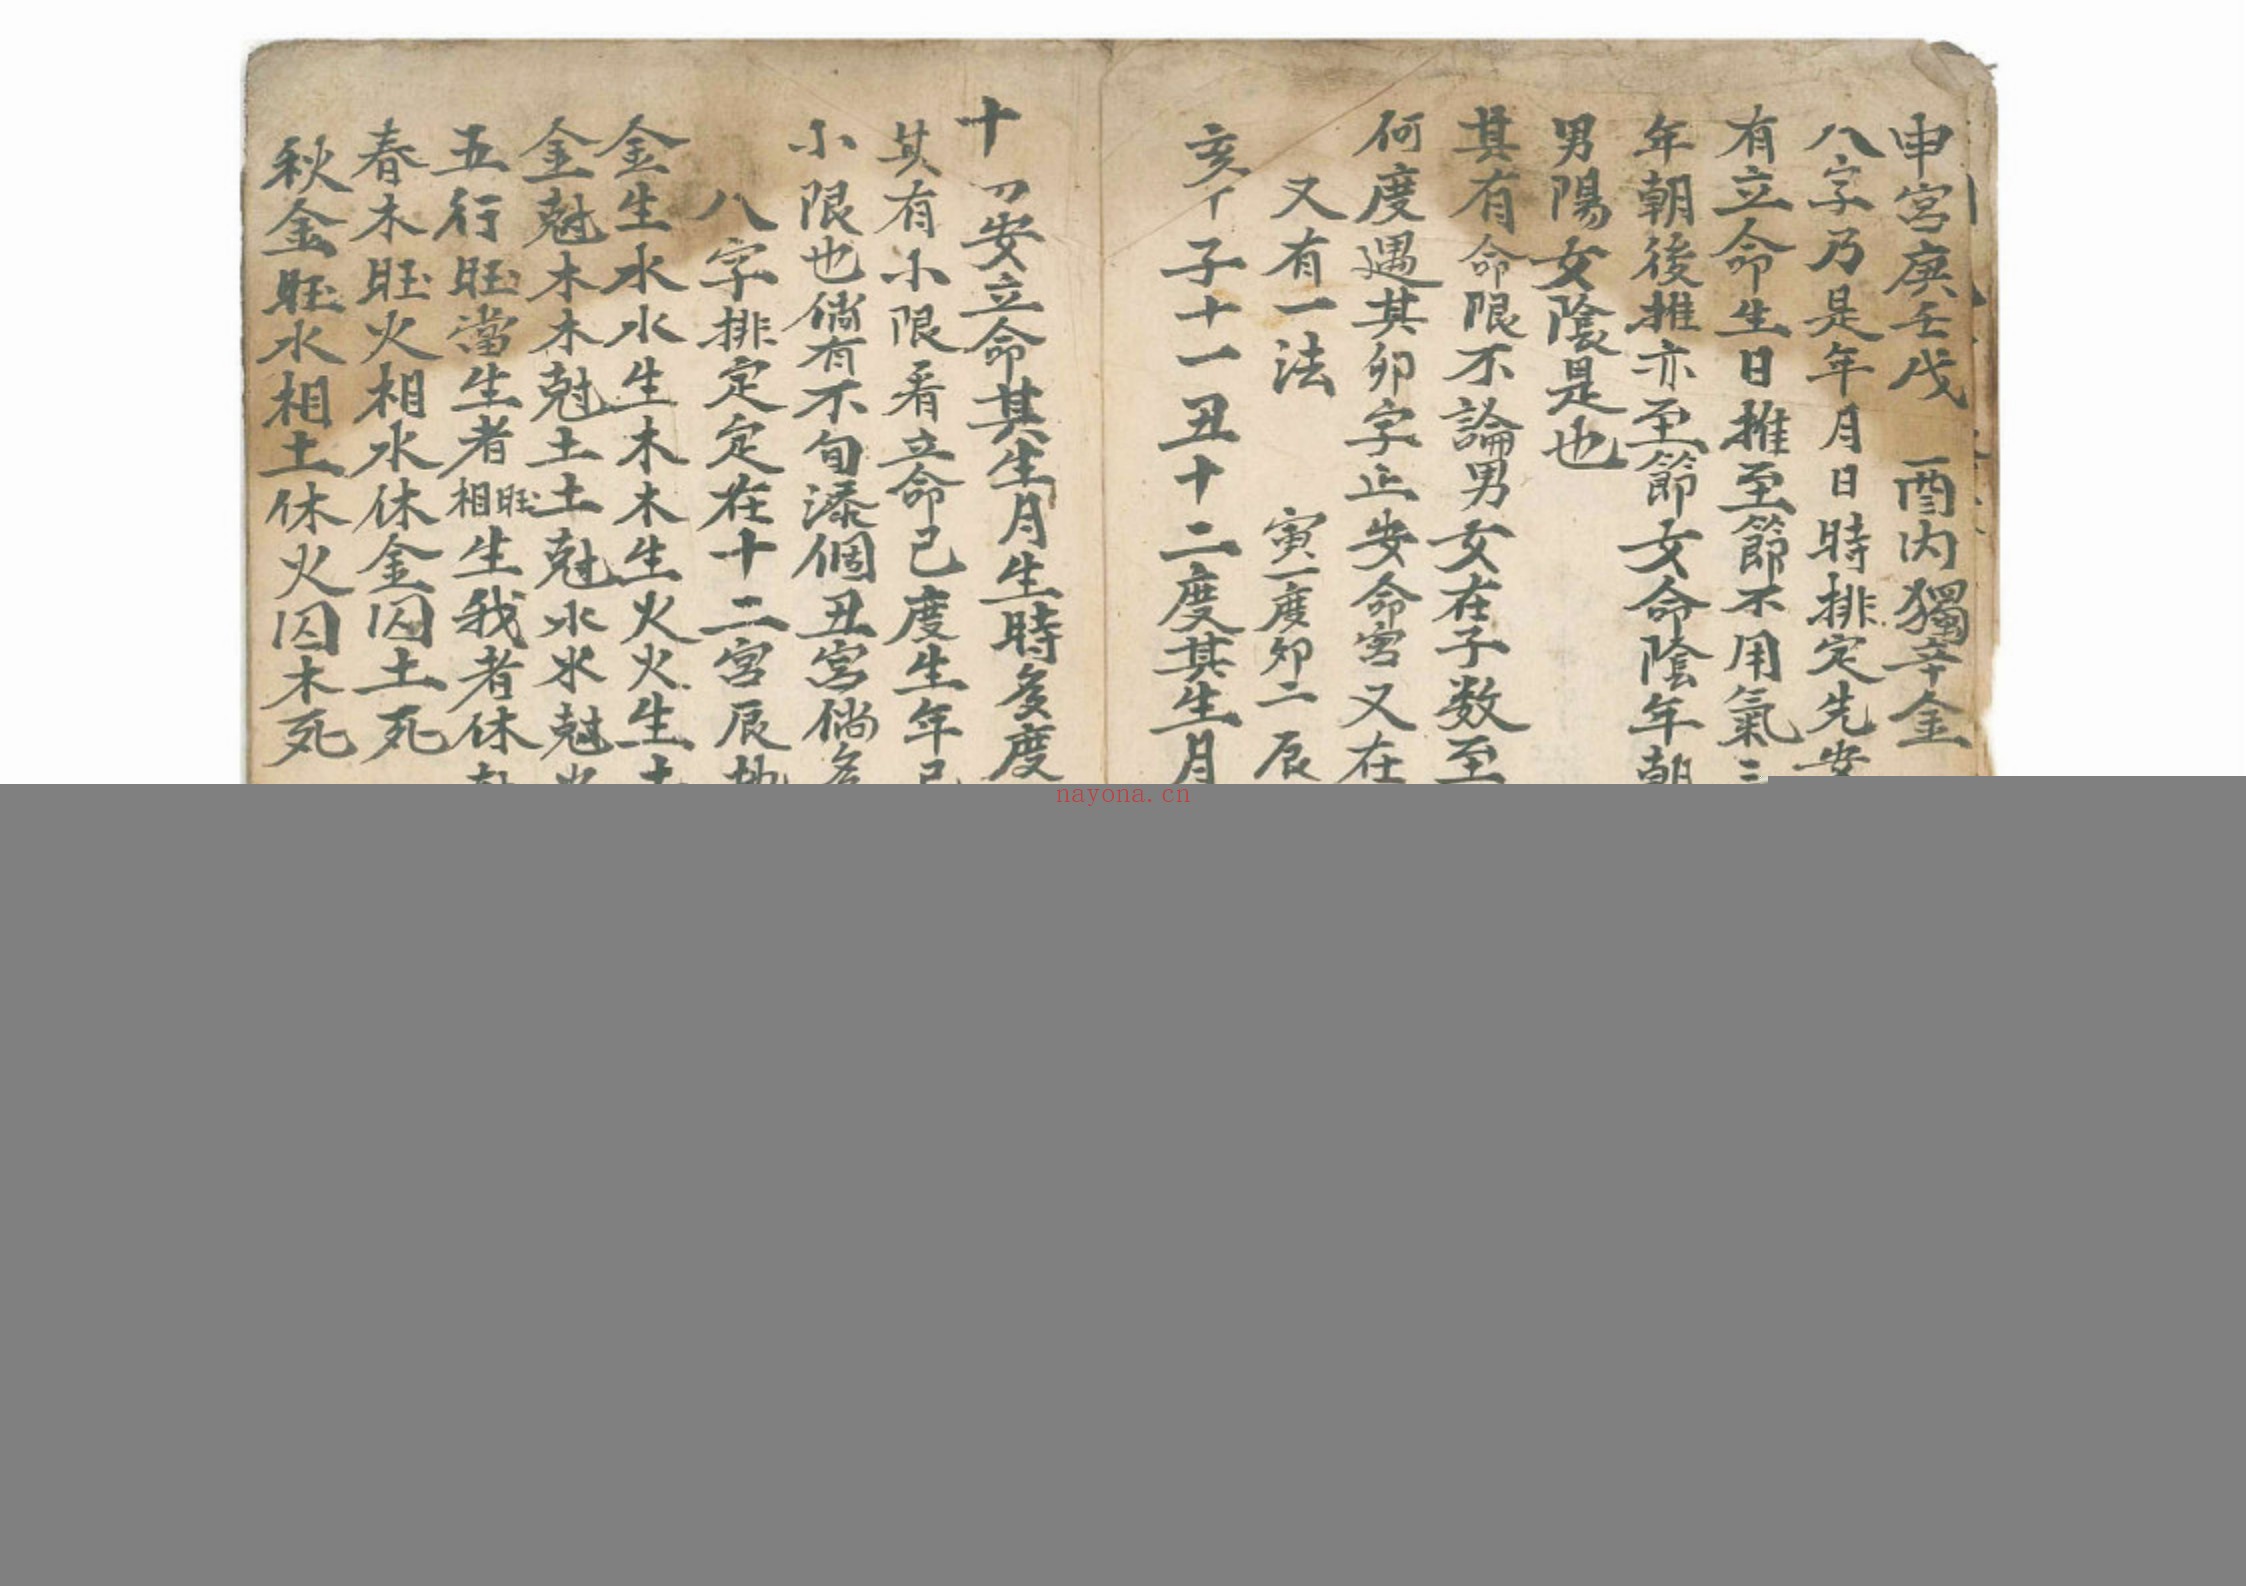 申宮庚壬戊 酉内獨辛金
八字乃是年月日時排定先安
有立命生日推至節不用氣三
年朝後推亦至節女命陰年朝
男陽女陰是也
其有命限不論男女在子数至
何度遇其卯字止安命宮又在
又有一法 寅一度卯二辰
亥十 子十一丑十二度其生月
十 安立命其生月生時多度
其有小限看立命己度生年
小限也倘有不旬添個丑宮倘多
八字排定定在十二宮辰地
金生水水生木木生火火生土
金尅木木尅土土尅水水尅火
五行旺當生者相旺生我者休
春木旺火相水休金囚土死
秋金旺水相土休火囚木死
nayona.cn